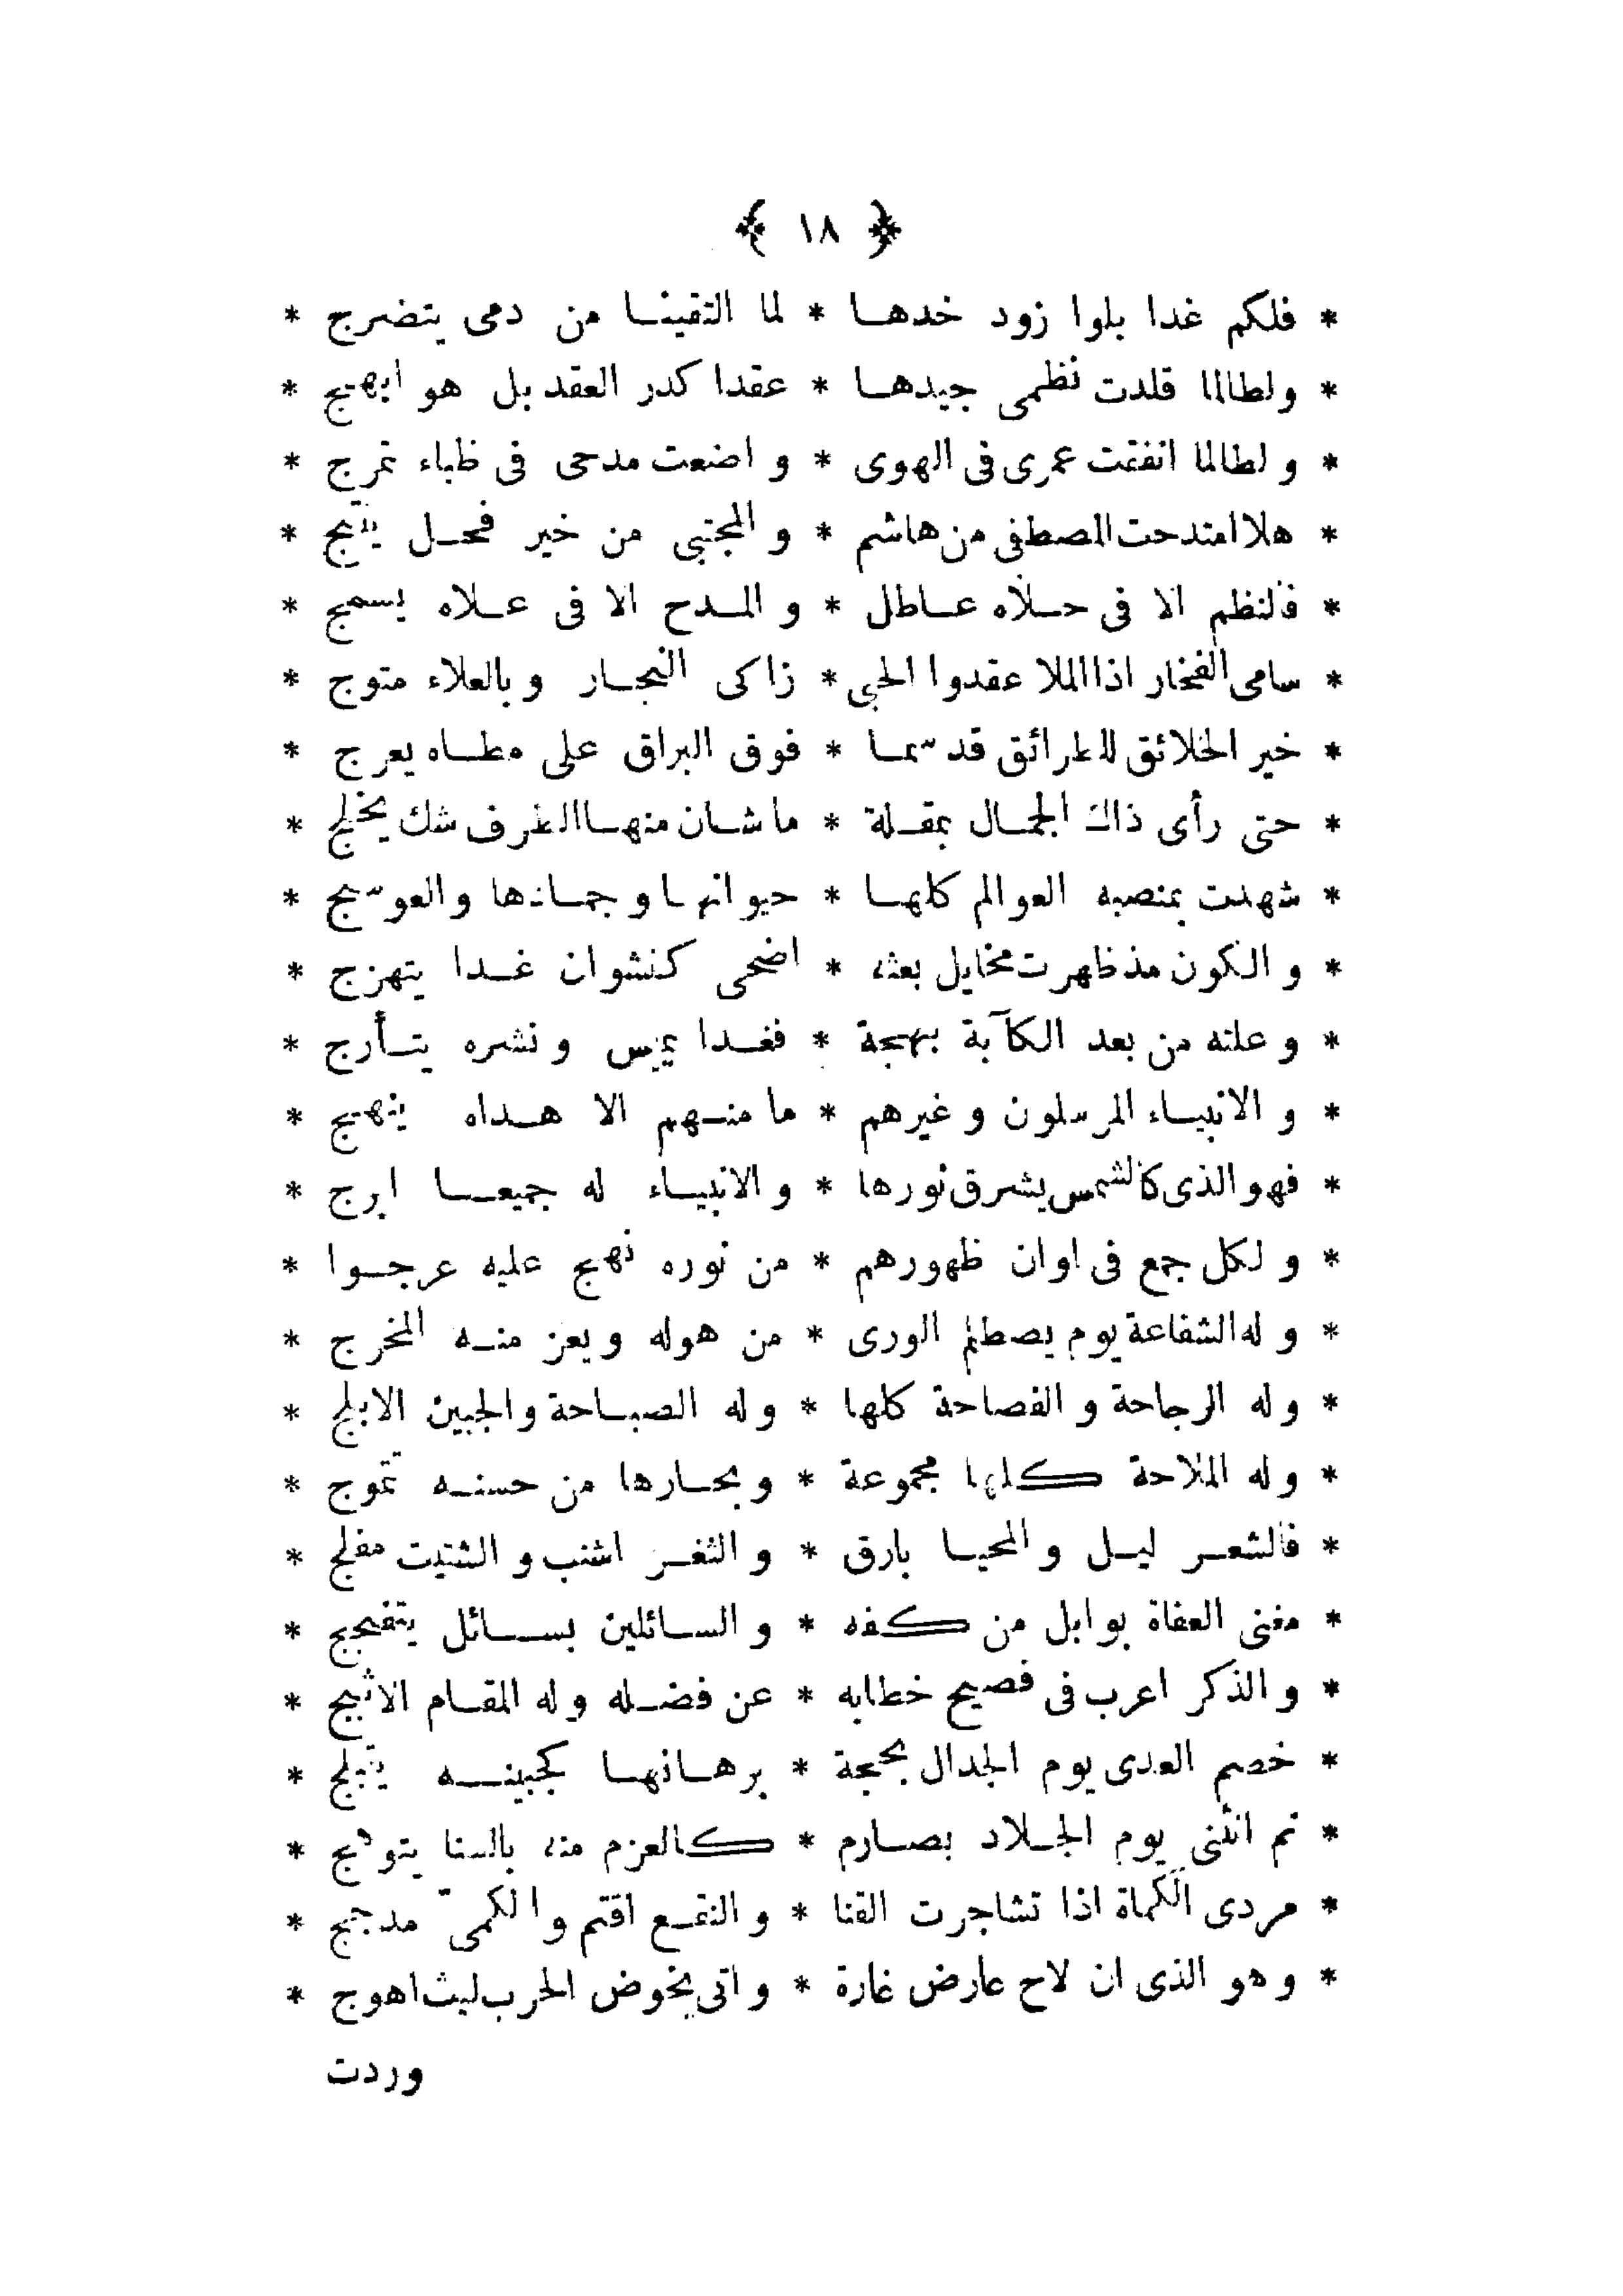 ﴿ ١٨ ﴾
* فلكم غدا بلوا زود خدها * لما التقينا من دمى يتضرج *
* ولطالما قلدت نظمى جيدها * عقدا كدر العقد بل هو ابهج *
* و لطالما انفقت عمرى فى الهوى * و اضعت مدحى فى ظباء تمرج *
* هلا امتدحت المصطفى من هاشم * و المجتبى من خير فحل ينتج *
* فالنظم الا فى حلاه عاطل * و المدح الا فى علاه يسمج *
* سامى الفخار اذا الملا عقدوا الحبى * زاكى النجار و بالعلاء متوج *
* خير الخلائق للطرائق قد سما * فوق البراق على مطاه يعرج *
* حتى رأى ذاك الجمال بمقلة * ما شان منها الطرف شك يخلج *
* شهدت بمنصبه العوالم كلها * حيوانها و جمادها والعوسج *
* و الكون مذ ظهرت مخايل بعثه * اضحى كنشوان غدا يتهزج *
* و علته من بعد الكآبة بهجة * فغدا يميس و نشره يتأرج *
* و الانبياء المرسلون و غيرهم * ما منهم الا هداه ينهج *
* فهو الذى كالشمس يشرق نورها * و الانبياء له جميعا ابرج *
* و لكل جمع فى اوان ظهورهم * من نوره نهج عليه عرجوا *
* و له الشفاعة يوم يصطلم الورى * من هوله و يعز منه المخرج *
* وله الرجاحة و الفصاحة كلها * وله الصباحة والجبين الابلج *
* وله الملاحة كلها مجموعة * و بحارها من حسنه تتموج *
* فالشعر ليل و المحيا بارق * و الثغر اشنب و الشتيت مفلج *
* مغنى العفاة بوابل من كفه * و السائلين بسائل يتفجج *
* و الذكر اعرب فى فصيح خطابه * عن فضله وله المقام الاثبج *
* خصم العدى يوم الجدال بحجة * برهانها كجبينه يتبلج *
* ثم انثنى يوم الجلاد بصارم * كالعزم منه بالسنا يتوهج *
* مردى الكماة اذا تشاجرت القنا * و النقع اقتم و الكمىّ مدجج *
* و هو الذى ان لاح عارض غارة * و اتى يخوض الحرب ليث اهوج *
وردت